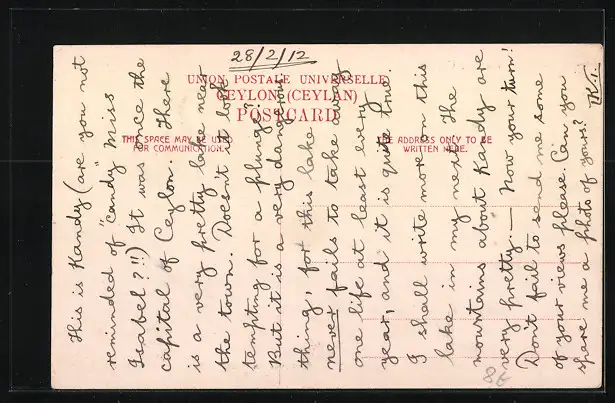 28/2/12
UNION POSTALE UNIVERSELLE
CEYLON (CEYLAN)
POSTCARD
THIS SPACE MAY BE USED
FOR COMMUNICATION.
THE ADDRESS ONLY TO BE
WRITTEN HERE.
This is Kandy (are you not
reminded of "candy" Miss
Isabel?!!) It was once the
capital of Ceylon. Here
is a very pretty lake near
the town. Doesn't it look
tempting for a plunge?
But it is a very dangerous
thing, for this lake
never fails to take away
one life at least every
year, and it is quite true.
I shall write more on this
lake in my next. The
mountains about Kandy are
very pretty — Now your turn!
Don't fail to send me some
of your views please. Can you
spare me a photo of yours?